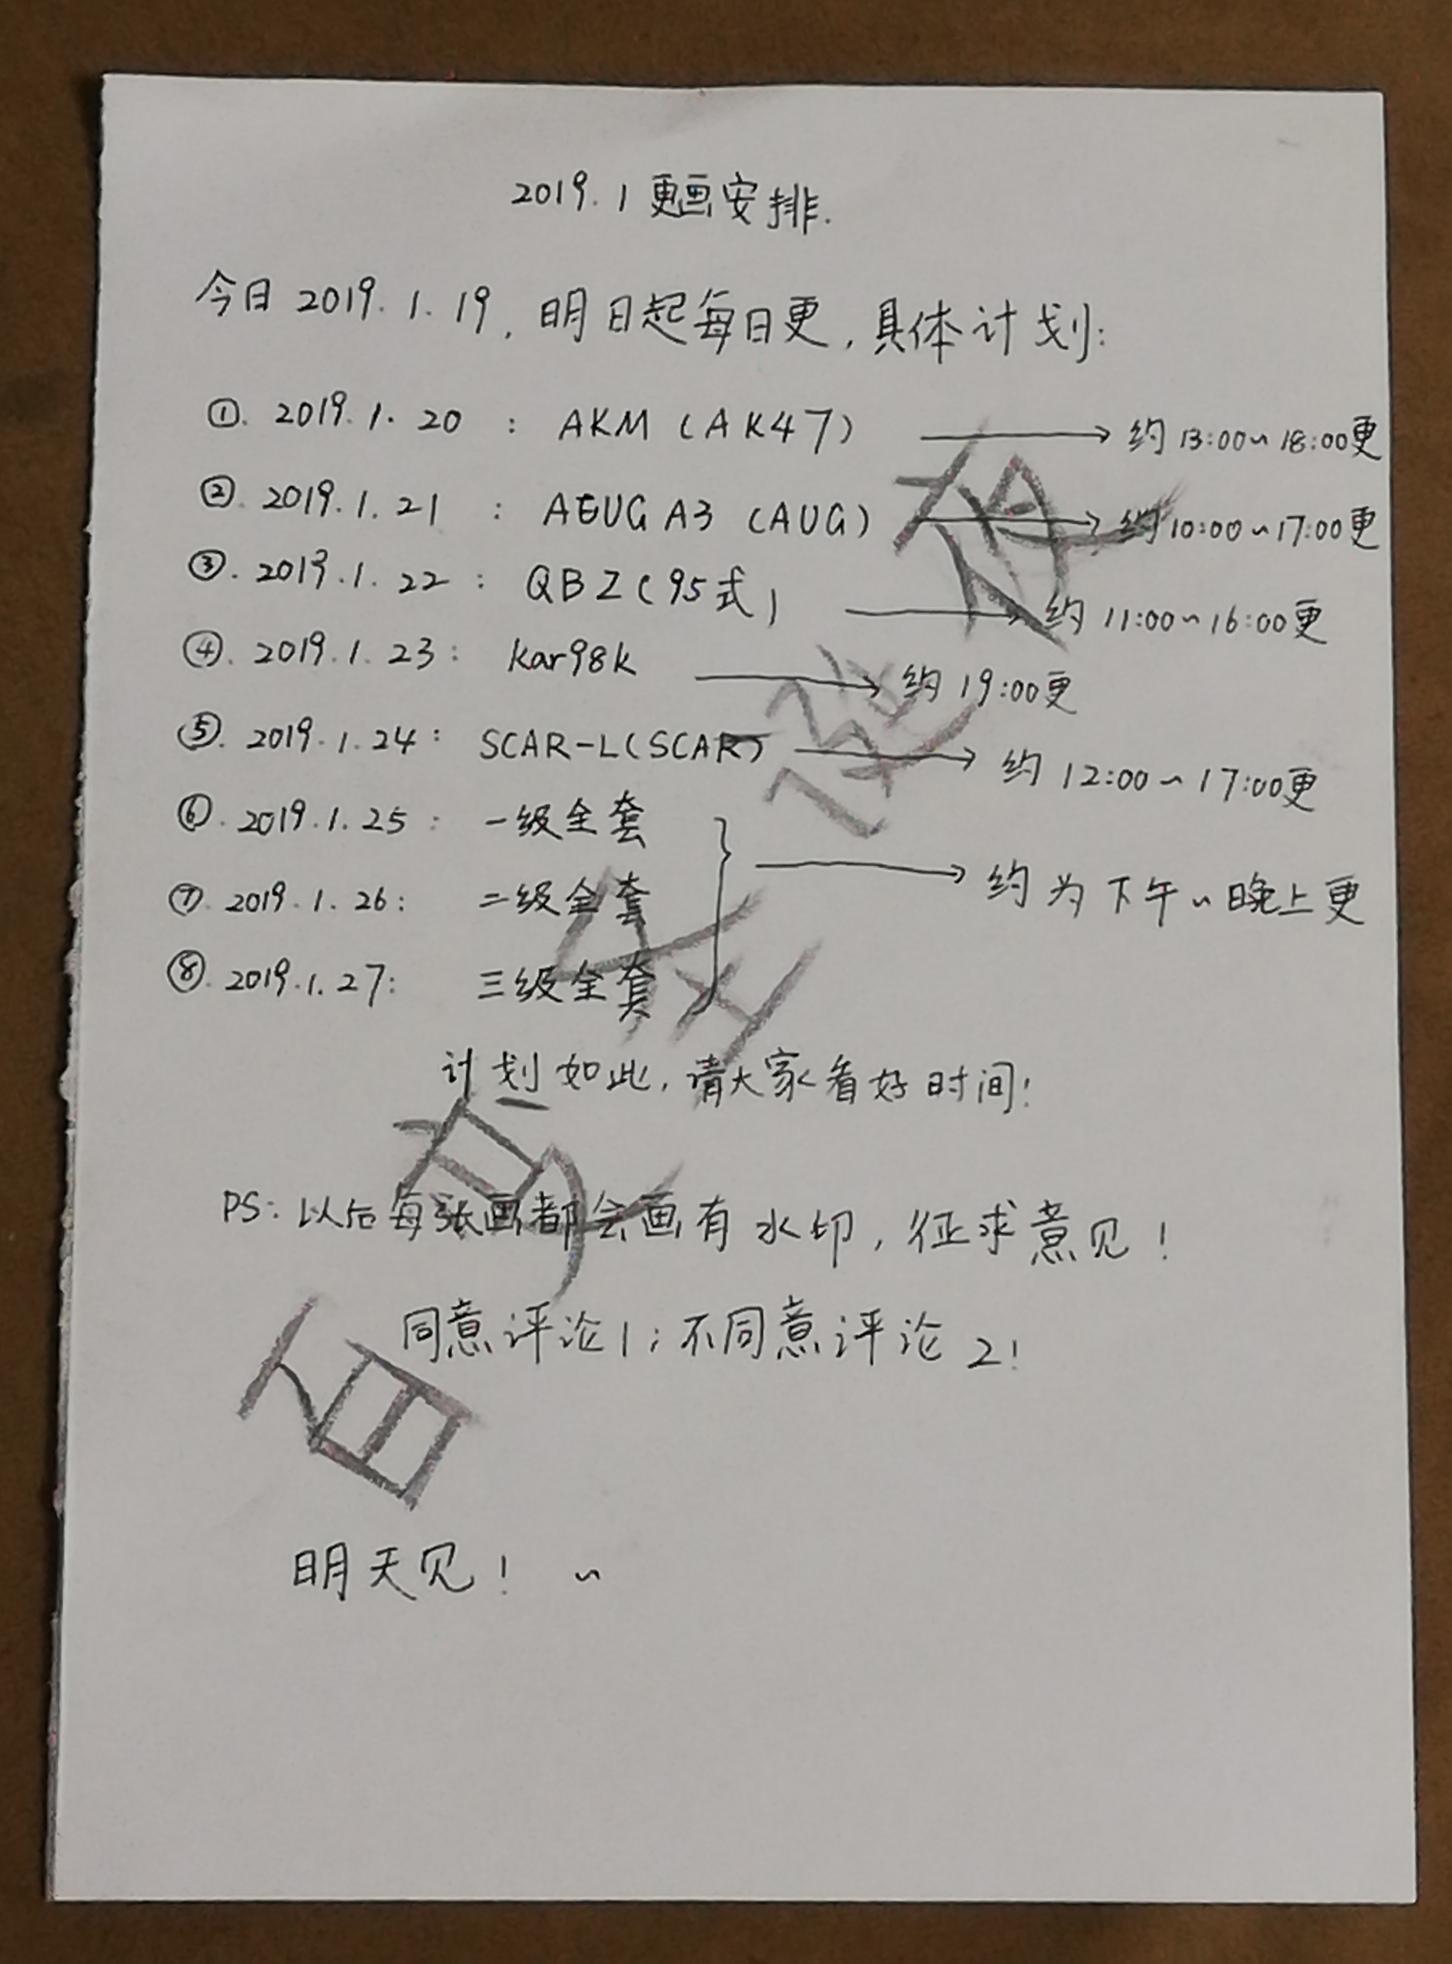 2019.1更画安排.
今日2019.1.19，明日起每日更，具体计划：
①. 2019.1.20 : AKM (AK47) → 约13:00~18:00更
②. 2019.1.21 : AEUG A3 (AUG) → 约10:00~17:00更
③. 2019.1.22 : QBZ(95式) → 约11:00~16:00更
④. 2019.1.23 : kar98k → 约19:00更
⑤. 2019.1.24 : SCAR-L(SCAR) → 约12:00~17:00更
⑥. 2019.1.25 : 一级全套
⑦. 2019.1.26 : 二级全套 } → 约为下午~晚上更
⑧. 2019.1.27 : 三级全套
计划如此，请大家看好时间！
PS：以后每张画都会画有水印，征求意见！
同意评论1；不同意评论2！
明天见！~